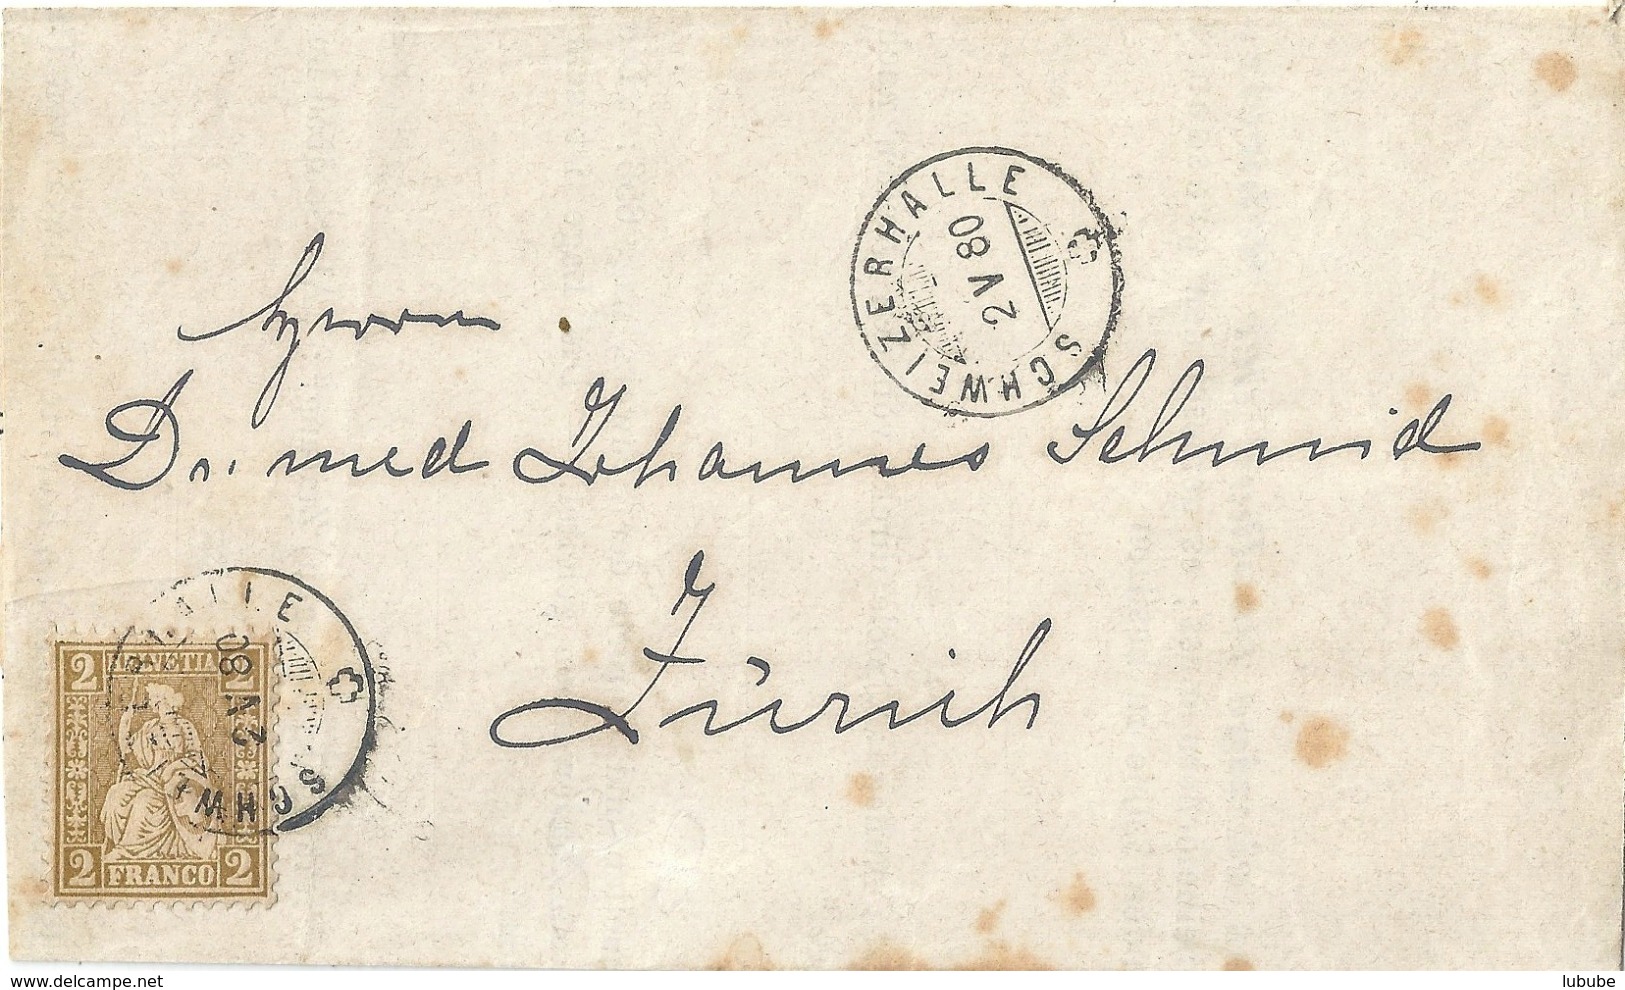 SCHWEIZERHALLE
2 V 80
Herrn
Dr. med Johannes Schmid
Zürich
2 HELVETIA 2
2 FRANCO 2
SCHWEIZERHALLE
2 V 80
www.delcampe.net
lubube